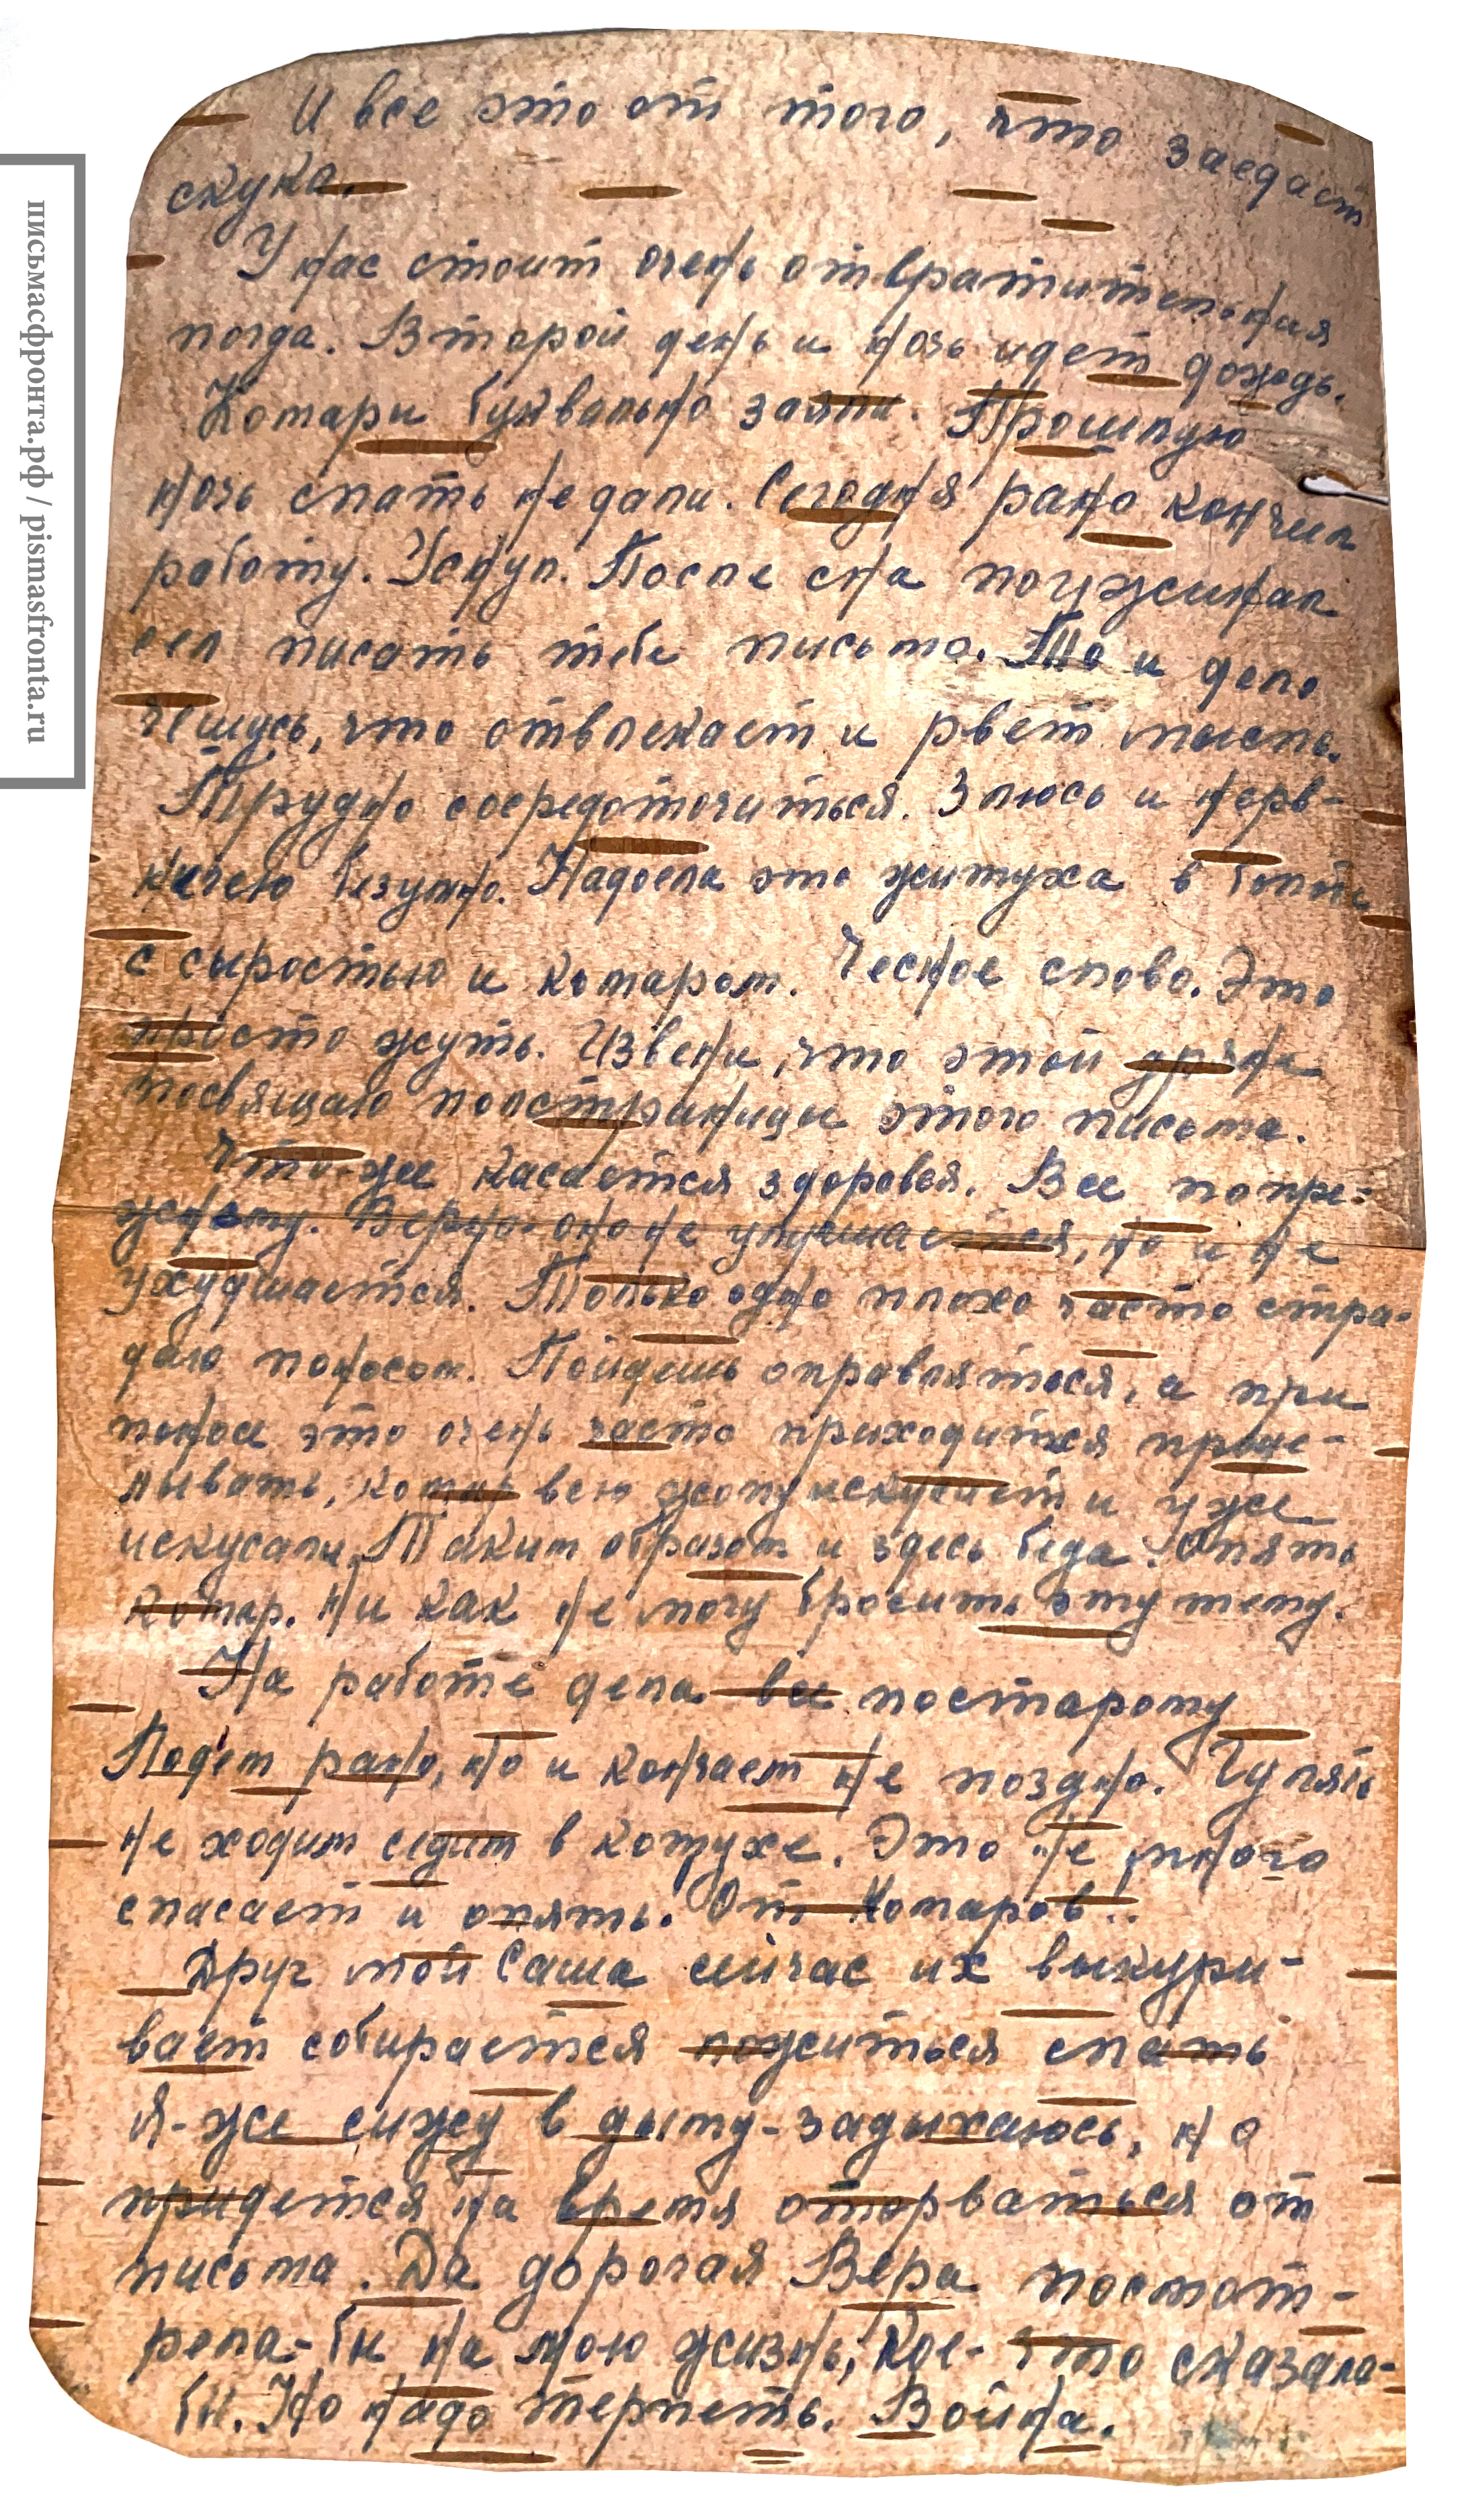 И все это от того, что заедает
скука.
У нас стоит очень отвратительная
погда. Второй день и ночь идет дождь.
Комары буквально заяли. Прошлую
ночь спать не дали. Сегодня рано кончил
работу. Уснул. После сна поужинал
сел писать тебе письмо. То и дело
чешусь, что отвлекает и рвет мысль.
Трудно сосредоточиться. Злюсь и нерв-
ничею безумно. Надоела это житуха в болоте
с сыростью и комаром. Чесное слово. Это
просто жуть. Извени, что этой дряне
посвящаю полстраницы этого письма.
Что-же касается здоровья. Все попре-
жнему. Верно оно не улучшается, но и не
ухудшается. Только одно плохо часто стра-
даю поносом. Пойдешь оправляться, а при
поносе это очень часто приходится проде-
лывать, комар всю жопу искусает и уже
искусали. Таким образом и здесь беда. Опять
комар. Ни как не могу бросить эту тему.
На работе дела все постарому
Подет рано, но и кончает не поздно. Гулять
не ходим седим в кожухе. Это не много
спасает и опять. От Комаров!.
Друг мой Саша сейчас их выкури-
вает собирается ложиться спать
Я-же сижу в дыму-задыхаюсь, но
придется на время оторваться от
письма. Да дорогая Вера посмот-
рела-бы на мою жизнь, кое-что сказала-
бы. Но надо терпеть. Война.
письмасфронта.рф / pismasfronta.ru